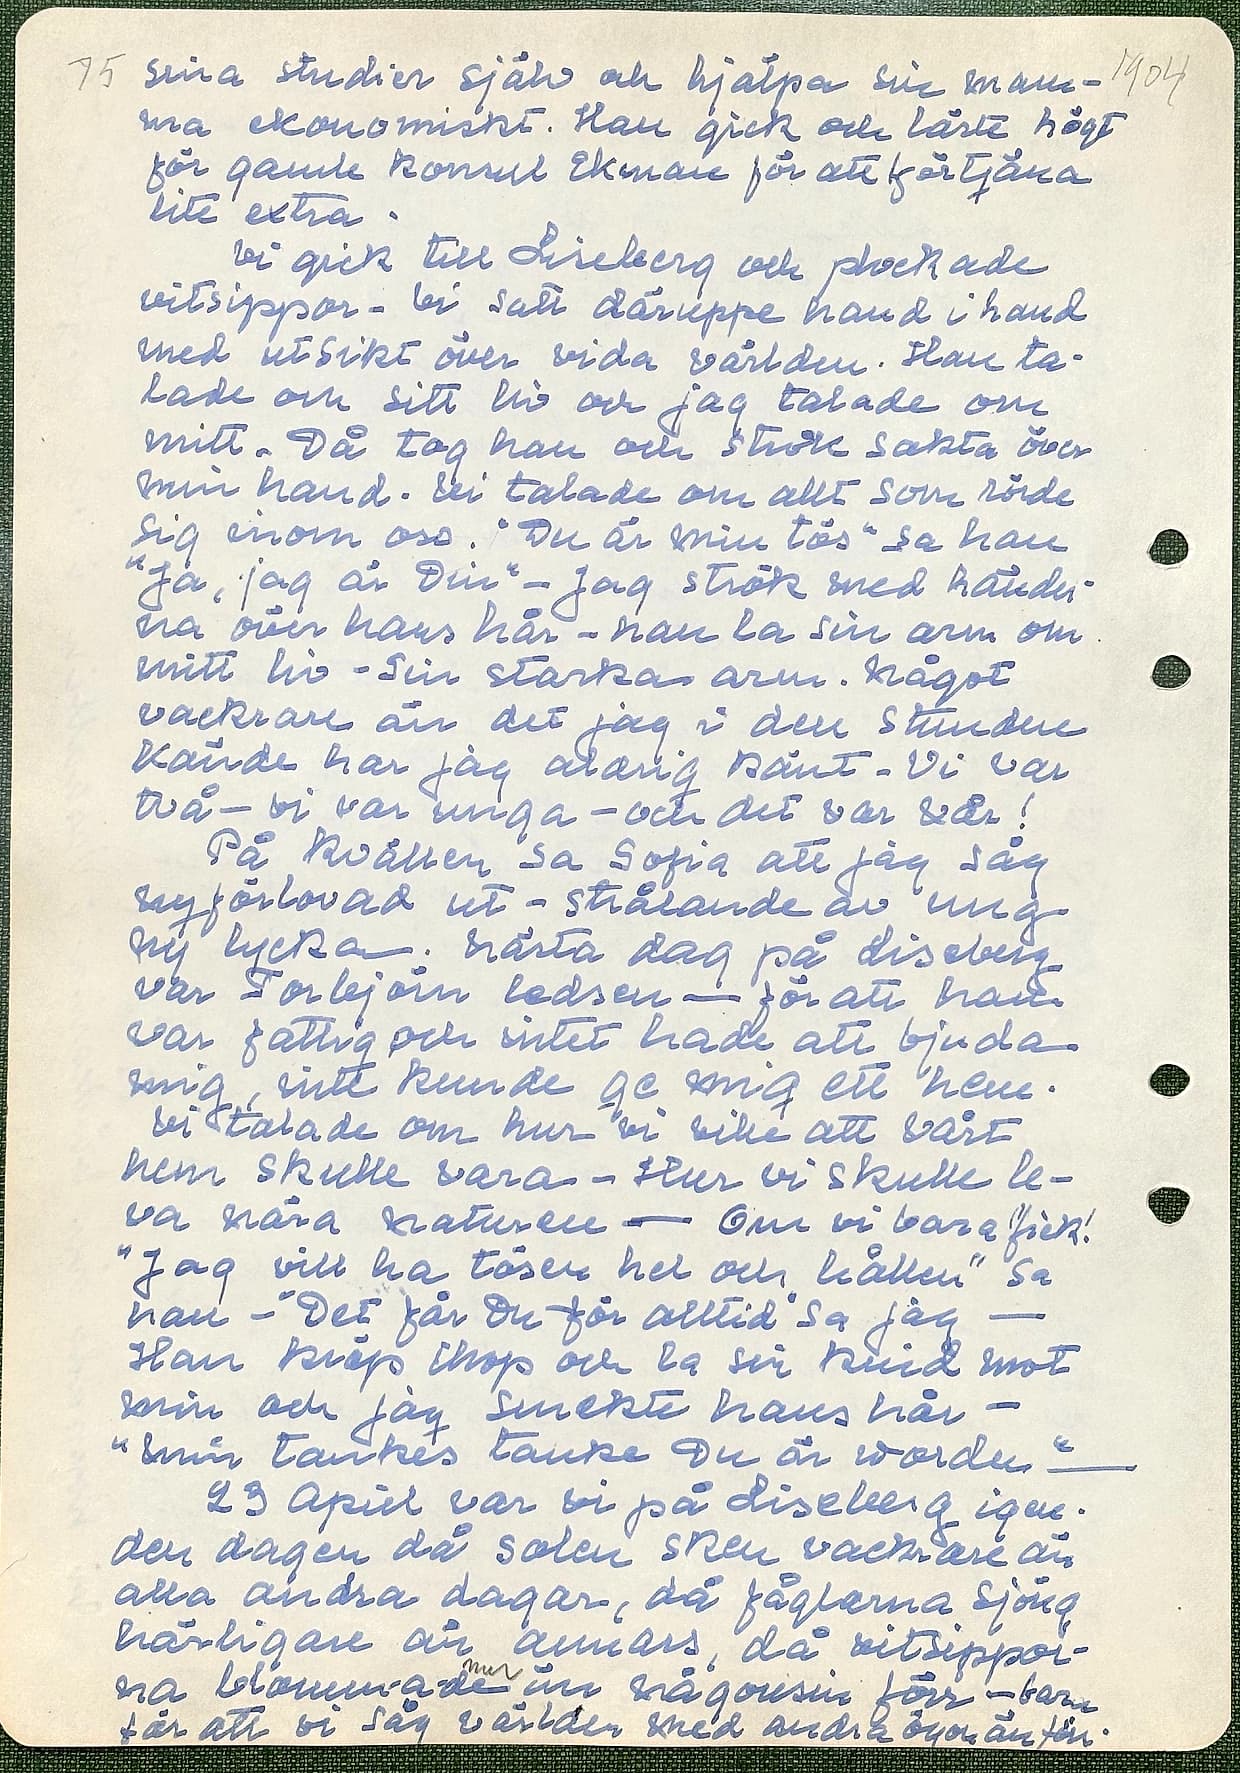 75 1904
sina studier själv och hjälpa sin mam-
ma ekonomiskt. Han gick och läste högt
för gamle Konsul Ekman för att förtjäna
lite extra.
Vi gick till Liseberg och plockade
vitsippor - Vi satt däruppe hand i hand
med utsikt över vida världen. Han ta-
lade om sitt liv och jag talade om
mitt. Då tog han och strök sakta över
min hand. Vi talade om allt som rörde
sig inom oss. "Du är min tös" sa han
"Ja, jag är Din" - Jag strök med händer-
na över hans hår - han la sin arm om
mitt liv - Sin starka arm. Något
vackrare än det jag i den stunden
kände har jag aldrig känt - Vi var
två - vi var unga - och det var vår!
På kvällen sa Sofia att jag såg
nyförlovad ut - strålande av ung
ny lycka. Nästa dag på Liseberg
var Torbjörn ledsen — för att han
var fattig och intet hade att bjuda
mig, inte kunde ge mig ett hem.
Vi talade om hur vi ville att vårt
hem skulle vara - Hur vi skulle le-
va nära naturen — Om vi bara "fick!
"Jag vill ha tösen hel och hållen" sa
han - "Det får Du för alltid" sa jag —
Han kröp ihop och la sin kind mot
min och jag smekte hans hår -
"Min tankes tanke Du är vorden" —
23 April var vi på Liseberg igen.
den dagen då solen sken vackrare än
alla andra dagar, då fåglarna sjöng
härligare än annars, då vitsippor-
na blommade mer än någonsin förr - bara
för att vi såg världen med andra ögon än förr.